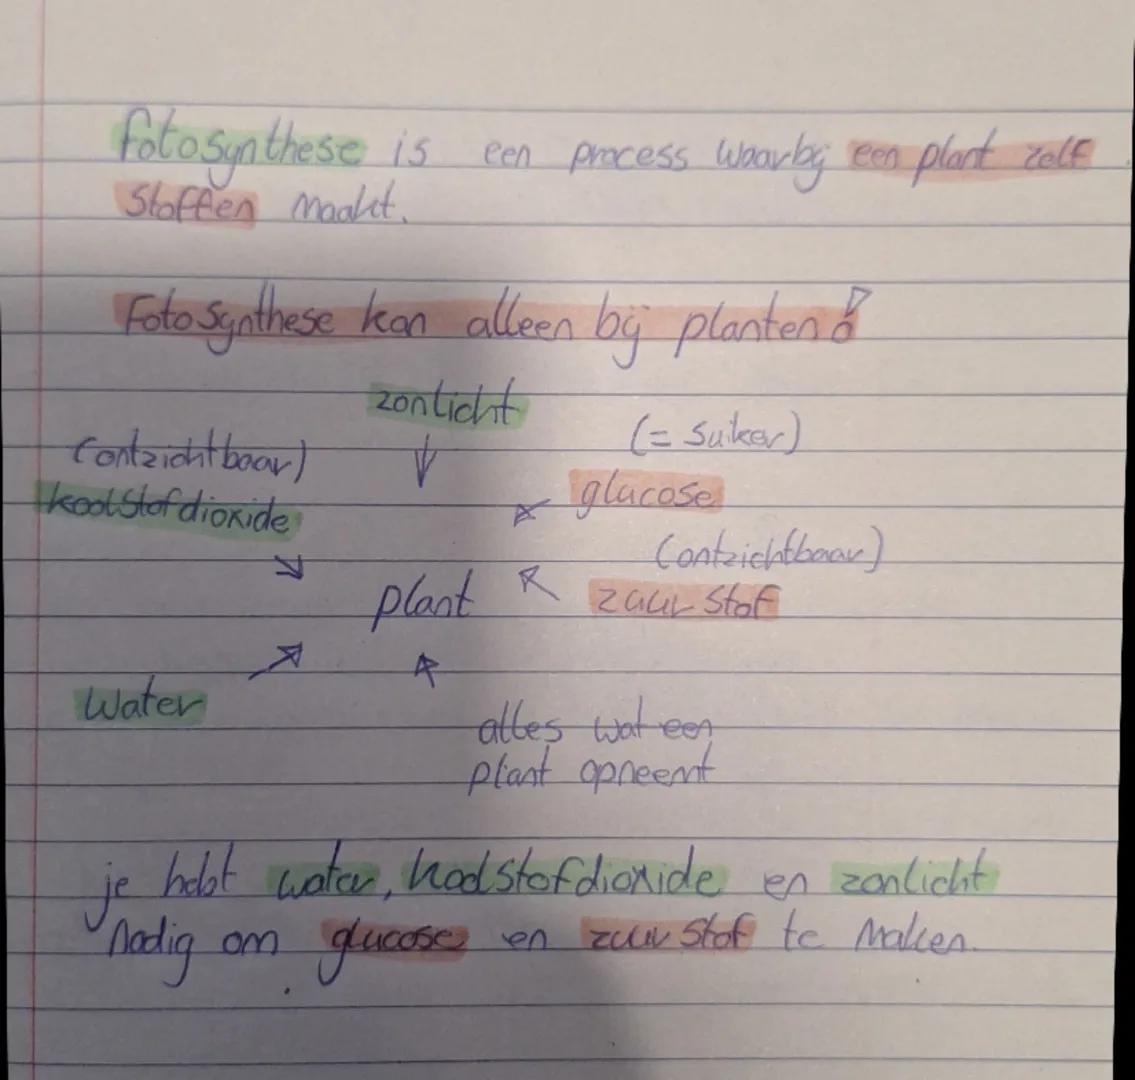 fotosynthese is een process waarbij een plant zelf
stoffen maakt.
Fotosynthese kan alleen bij planten!
zonlicht
(= suiker)
(ontzichtbaar)
glucose
koolstofdioxide
(ontzichtbaar)
plant
zuurstof
Water
alles wat een
plant opneemt
je hebt water, koolstofdioxide en zonlicht
nodig om glucose en zuurstof te maken.